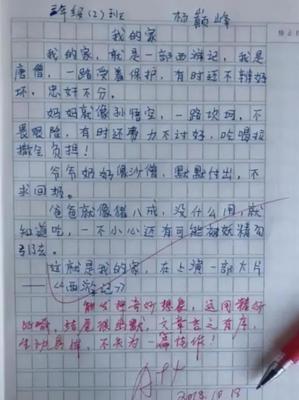 三年级(2)班 杨巅峰
我的家
我的家，就是一部西游记，我是
唐僧，一路受着保护，有时还不辨好
坏，忠奸不分。
妈妈就像孙悟空，一路坎坷，不
畏艰险，有时还费力不讨好，吃喝拉
撒全负担！
爷爷奶奶像沙僧，默默付出，不
求回报。
爸爸就像猪八戒，没什么用，就
知道吃，一不小心还有可能被妖精勾
引去。
这就是我的家，在上演一部大片
——《西游记》
想象，运用
的比喻，结尾很幽默，文章言之有序，
生动具体，不失为一篇佳作！
A++
2018.10.18